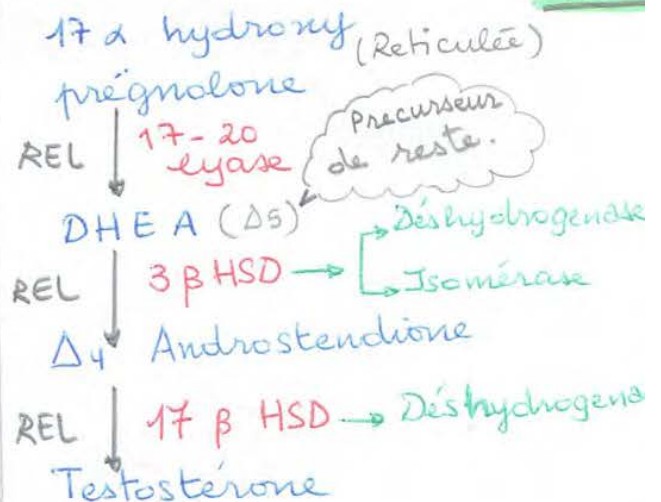 17 α hydroxy (Reticulée)
prégnolone
REL 17-20 lyase
Precurseur de reste.
DHEA (Δ5)
REL 3 β HSD → Déshydrogenase
Isomérase
Δ4 Androstendione
REL 17 β HSD → Déshydrogena
Testostérone